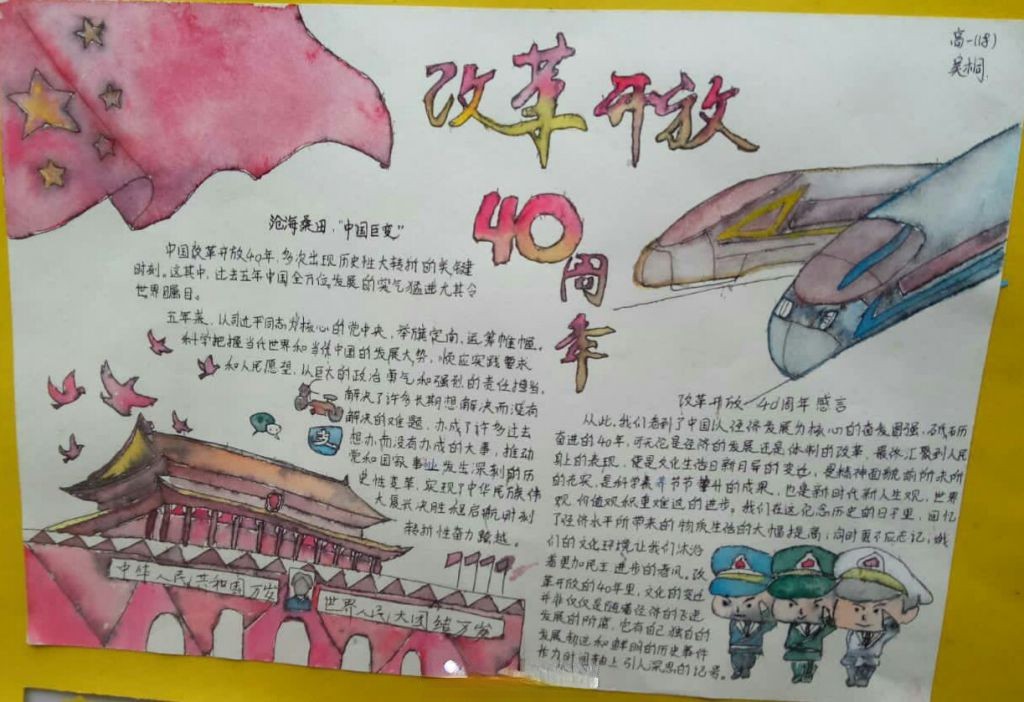 高一(18)
吴桐
改革开放
40
周
年
沧海桑田，"中国巨变"
中国改革开放40年，多次出现历史性大转折的关键
时刻。这其中，过去五年中国全方位发展的突气猛进尤其令
世界瞩目。
五年来，以习近平同志为核心的党中央，举旗定向，运筹帷幄。
科学把握当代世界和当代中国的发展大势，顺应实践要求
和人民愿望，以巨大的政治勇气和强烈的责任担当，
解决了许多长期想解决而没有
解决的难题，办成了许多过去
想办而没有办成的大事，推动
党和国家事业发生深刻的历
史性变革，实现了中华民族伟
大复兴决胜征程启航时刻
转折性奋力跨越。
支
中华人民共和国万岁
世界人民大团结万岁
改革开放40周年感言
从此，我们看到了中国以经济发展为核心的奋发图强、砥砺
奋进的40年，可无论是经济的发展还是体制的改革，最终汇聚到人民
身上的表现，便是文化生活日新月异的变迁，是精神面貌前所未所
的充实，是科学素养节节攀升的成果，也是新时代新人生观，世界
观，价值观积重难返的进步。我们在这纪念历史的日子里，回忆
了经济水平所带来的物质生活的大幅提高，同时更不应忘记，我
们的文化环境让我们沐浴
着更加民主进步的春风。改
革开放的40年里，文化的变迁
并非仅仅是随着经济的飞速
发展的附庸，它有自己独自的
发展轨迹和鲜明的历史事件
作为时间轴上引人深思的记号。